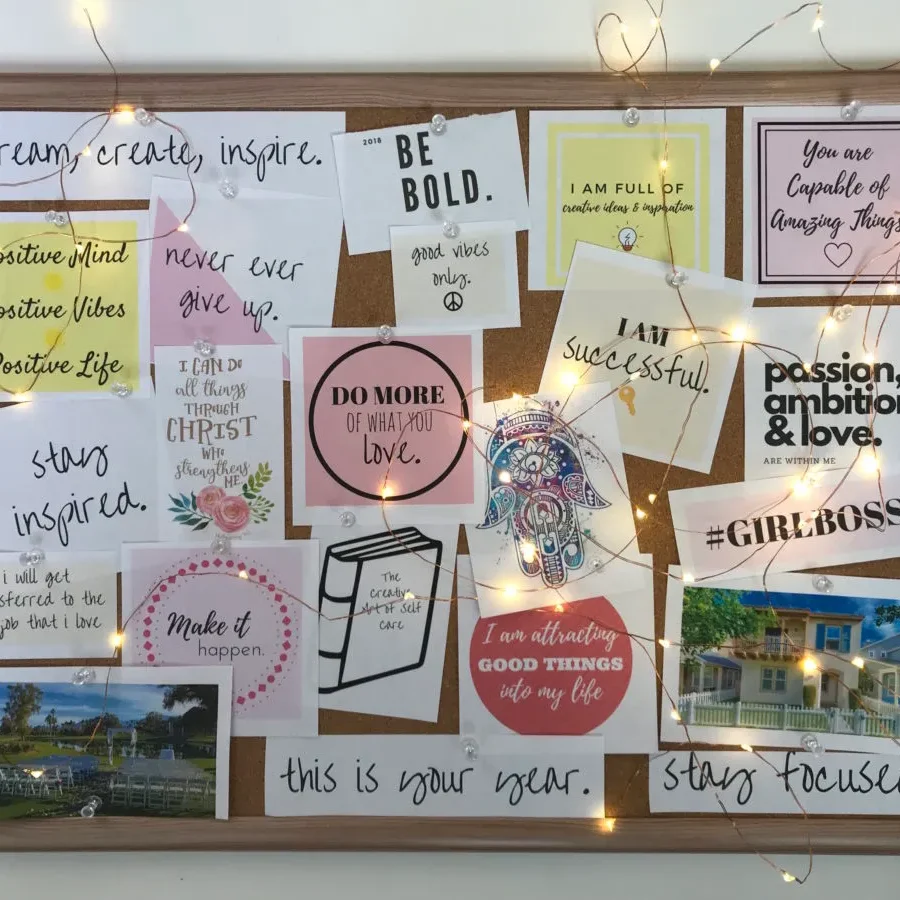 ream, create, inspire.
2018
BE
BOLD.
I AM FULL OF
creative ideas & inspiration
You are
Capable of
Amazing Things
ositive Mind
ositive Vibes
ositive Life
never ever
give up.
good vibes
only.
I AM
successful.
passion,
ambition
& love.
ARE WITHIN ME
I CAN DO
all things
THROUGH
CHRIST
WHO
strengthens
ME.
DO MORE
OF WHAT YOU
love.
stay
inspired.
#GIRLBOSS
i will get
sferred to the
job that i love
Make it
happen.
The
creative
Art of Self
care
I am attracting
GOOD THINGS
into my life
this is your year.
stay focuse